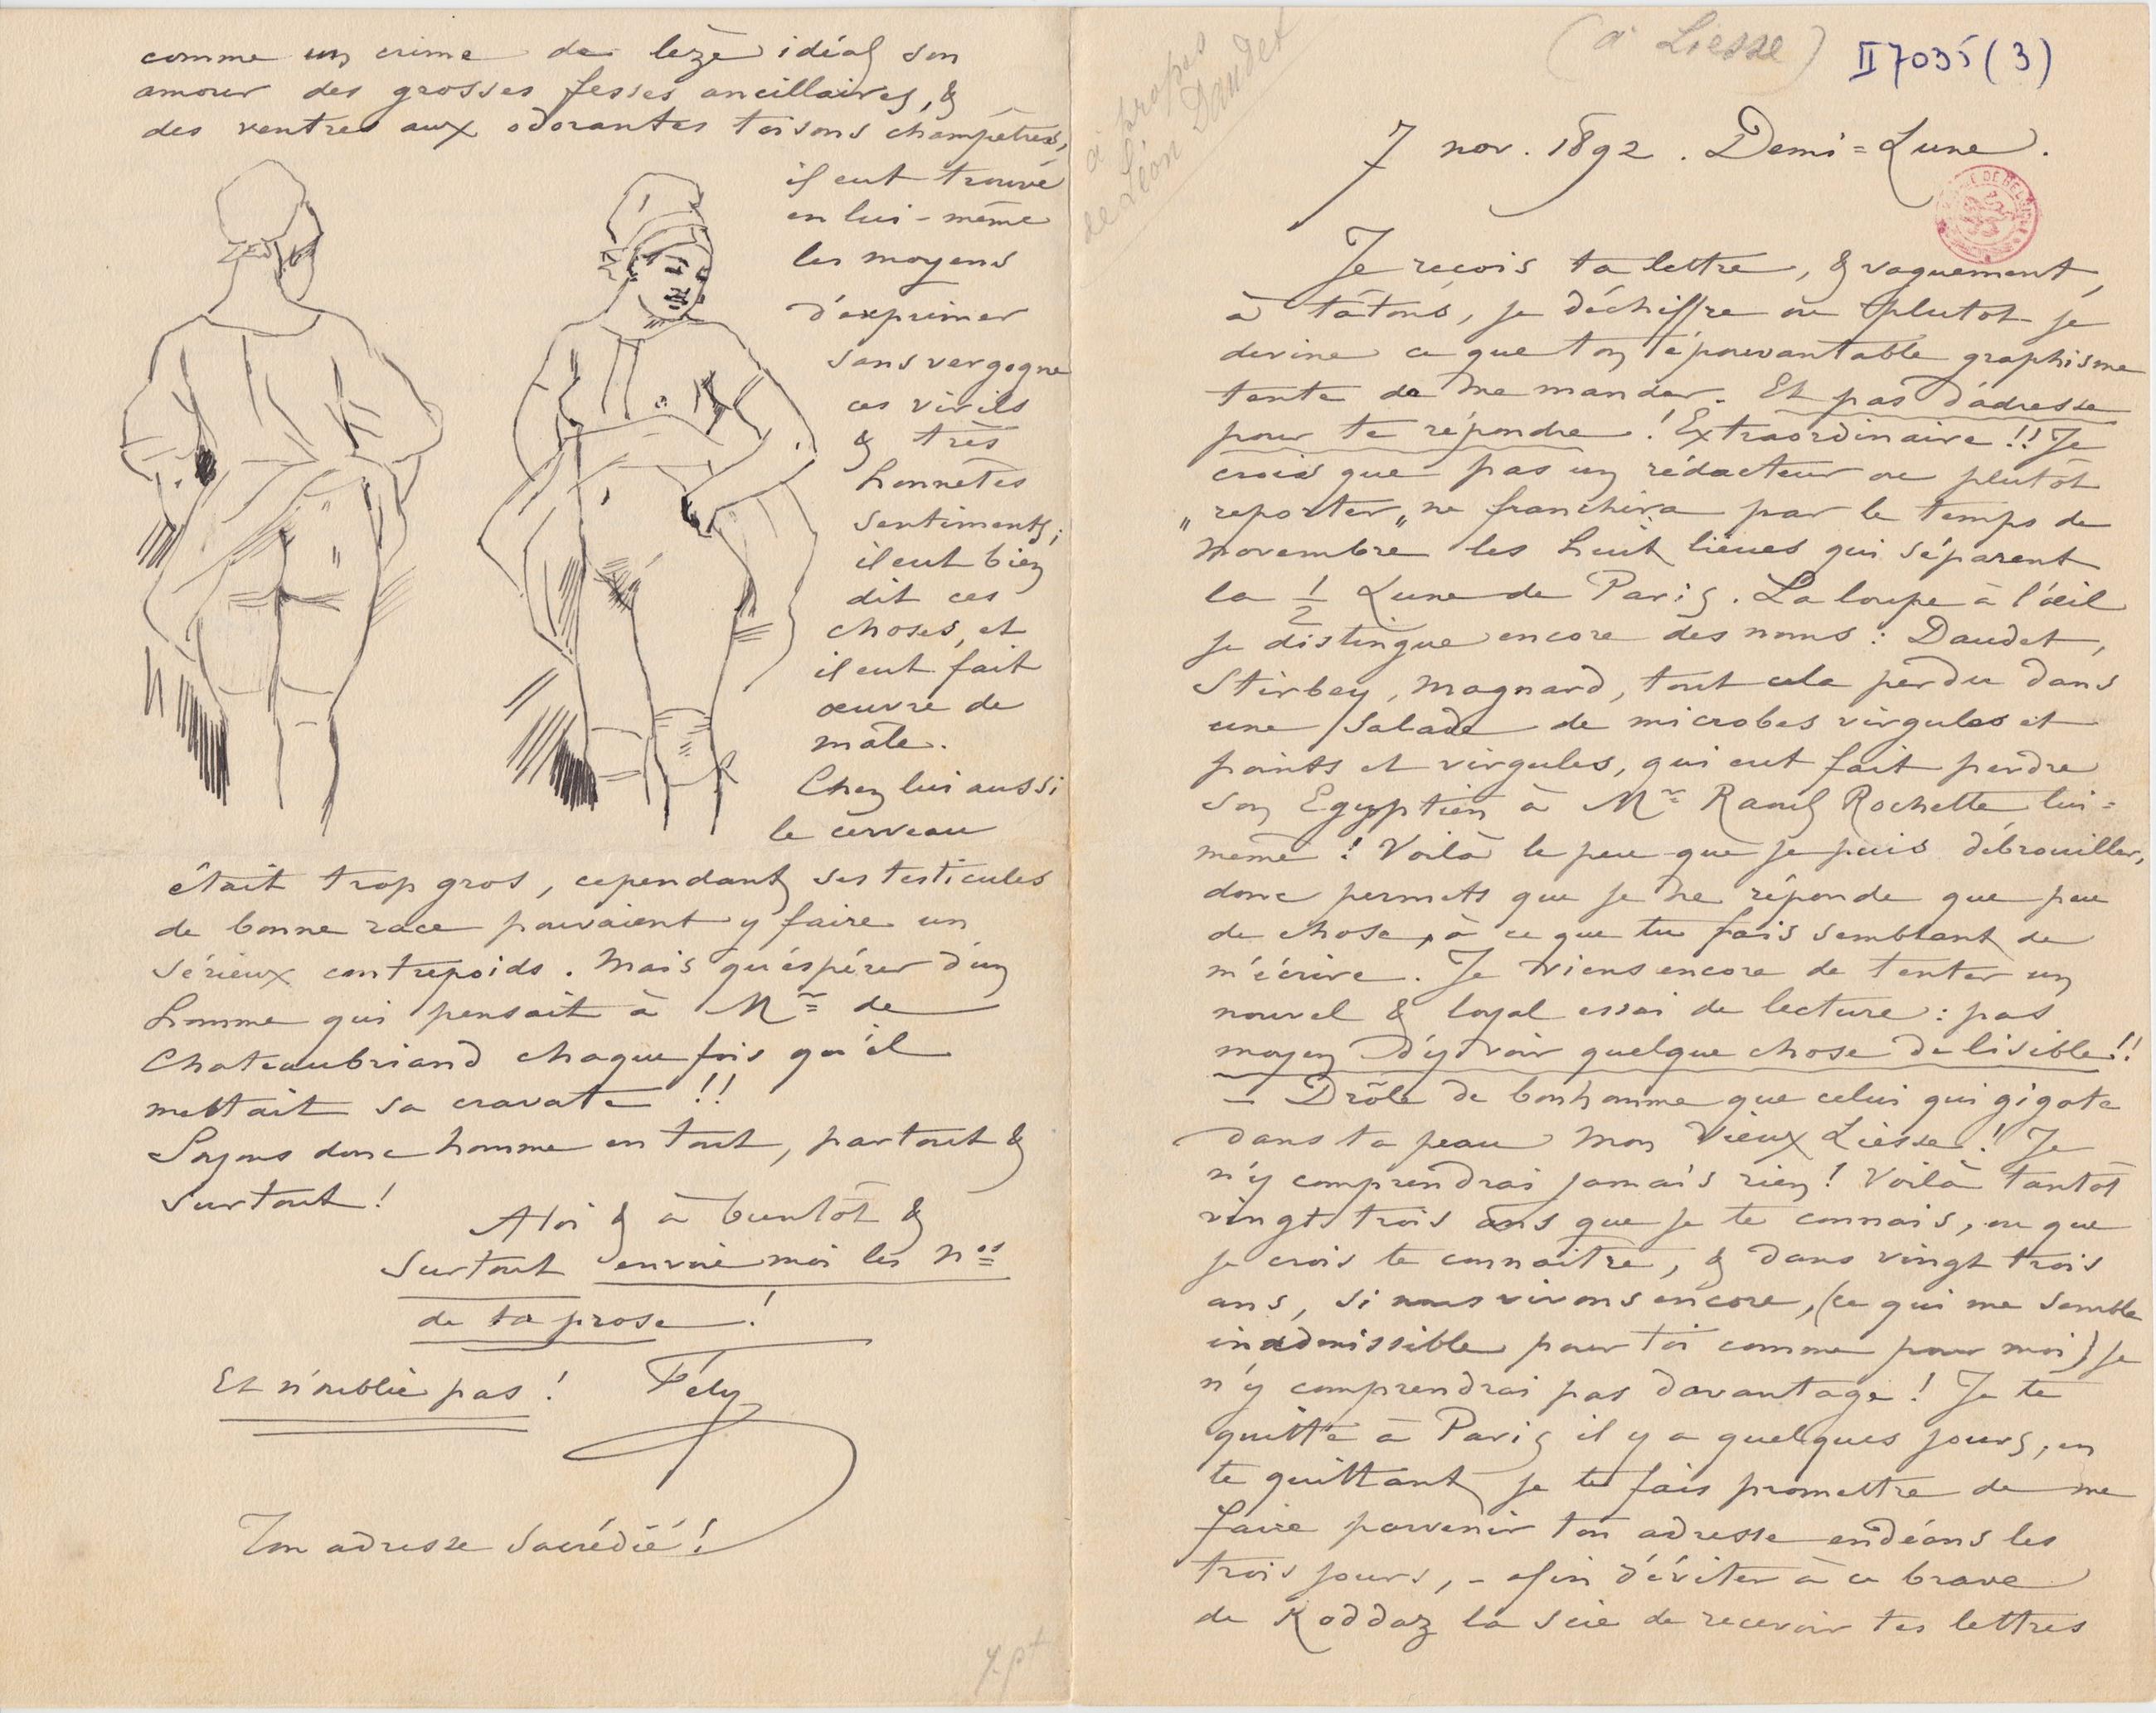 (à Liesse)
II 7035 (3)
à propos
de Léon Daudet
7 nov. 1892. Demi=Lune.
Je reçois ta lettre, & vaguement,
à tâtons, je déchiffre ou plutot je
devine ce que ton épouvantable graphisme
tente de me mander. Et pas d'adresse
pour te répondre ! Extraordinaire !! Je
crois que pas un rédacteur ou plutôt
"reporter" ne franchira par le temps de
novembre les huit lieues qui séparent
la ½ Lune de Paris. La loupe à l'œil
je distingue encore des noms : Daudet,
Stirbey, Magnard, tout cela perdu dans
une salade de microbes virgules et
points et virgules, qui eut fait perdre
son Egyptien à Mr Raoul Rochette lui=
même ! Voilà le peu que je puis débrouiller,
donc permets que je ne réponde que peu
de chose, à ce que tu fais semblant de
m'écrire. Je viens encore de tenter un
nouvel & loyal essai de lecture : pas
moyen d'y voir quelque chose de lisible !!
– Drôle de bonhomme que celui qui gigote
dans ta peau mon Vieux Liesse ! Je
n'y comprendrai jamais rien ! Voilà tantôt
vingt trois ans que je te connais, ou que
je crois te connaître, & dans vingt trois
ans, si nous vivons encore, (ce qui me semble
inadmissible pour toi comme pour moi) je
n'y comprendrai pas davantage ! Je te
quitte à Paris il y a quelques jours, en
te quittant je te fais promettre de me
faire parvenir ton adresse endéans les
trois jours, – afin d'éviter à ce brave
de Roddaz la scie de recevoir tes lettres
comme un crime de lèze idéal son
amour des grosses fesses ancillaires, &
des ventres aux odorantes toisons champêtres,
il eut trouvé
en lui-même
les moyens
d'exprimer
sans vergogne
ces virils
& très
honnêtes
sentiments ;
il eut bien
dit ces
choses, et
il eut fait
œuvre de
mâle.
Chez lui aussi
le cerveau
était trop gros, cependant ses testicules
de bonne race pouvaient y faire un
sérieux contrepoids. Mais qu'éspérer d'un
homme qui pensait à Mr de
Chateaubriand chaque fois qu'il
mettait sa cravate !!
Soyons donc homme en tout, partout &
surtout !
A toi & à bientôt &
surtout envoie moi les nos
de ta prose !
Et n'oublie pas ! Fély
Ton adresse sacrédié !